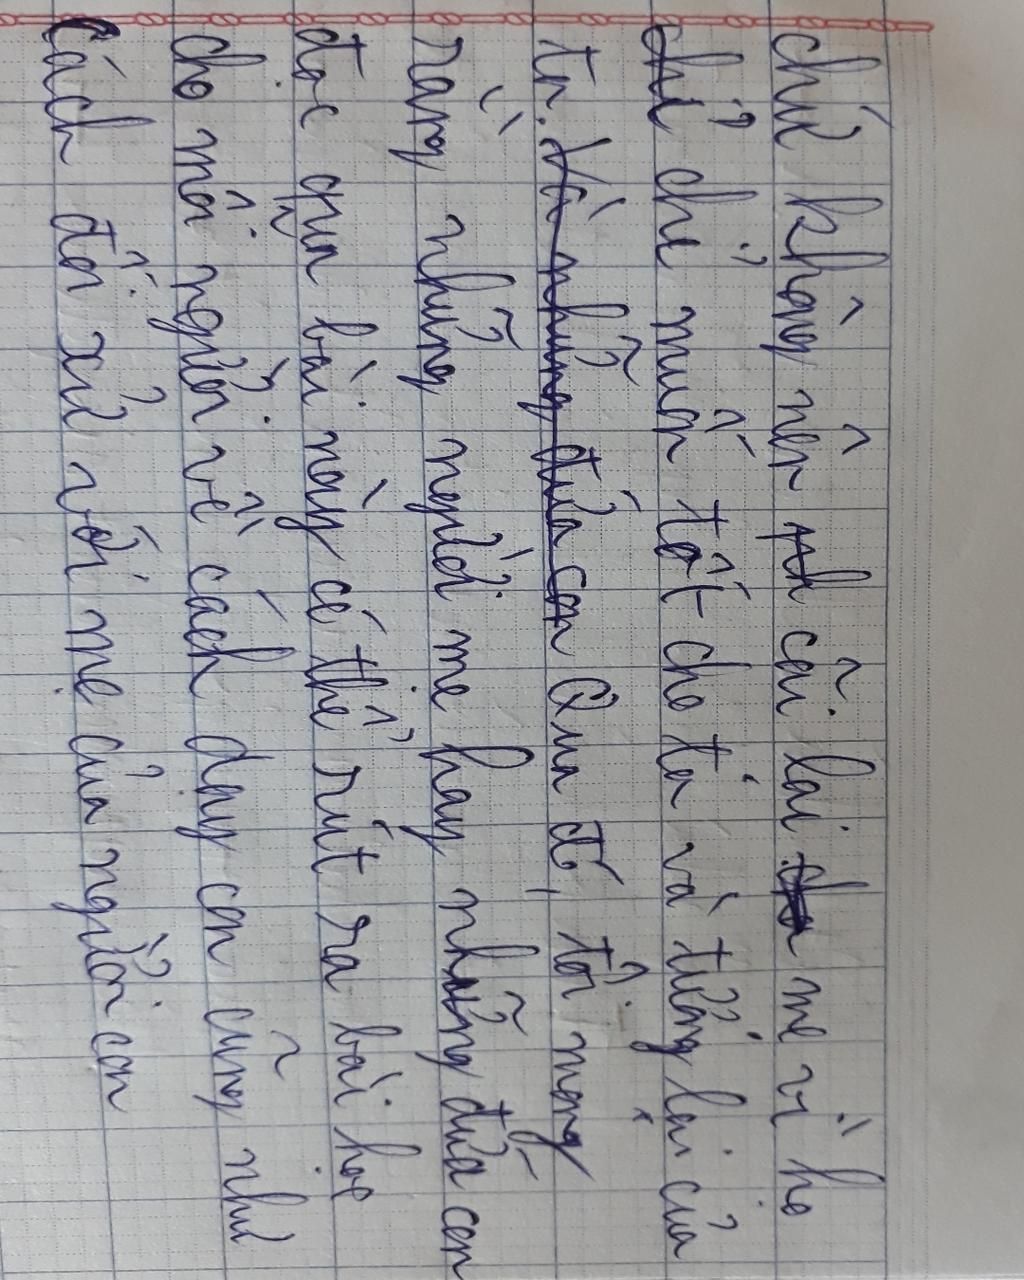 chứ không nên cãi lại mẹ vì họ
chỉ chỉ muốn tốt cho ta và tương lai của
ta. Và những đứa con Qua đó, tôi mong
rằng những người mẹ hay những đứa con
đọc qua bài này có thể rút ra bài học
cho mỗi người về cách dạy con cũng như
Cách đối xử với mẹ của người con